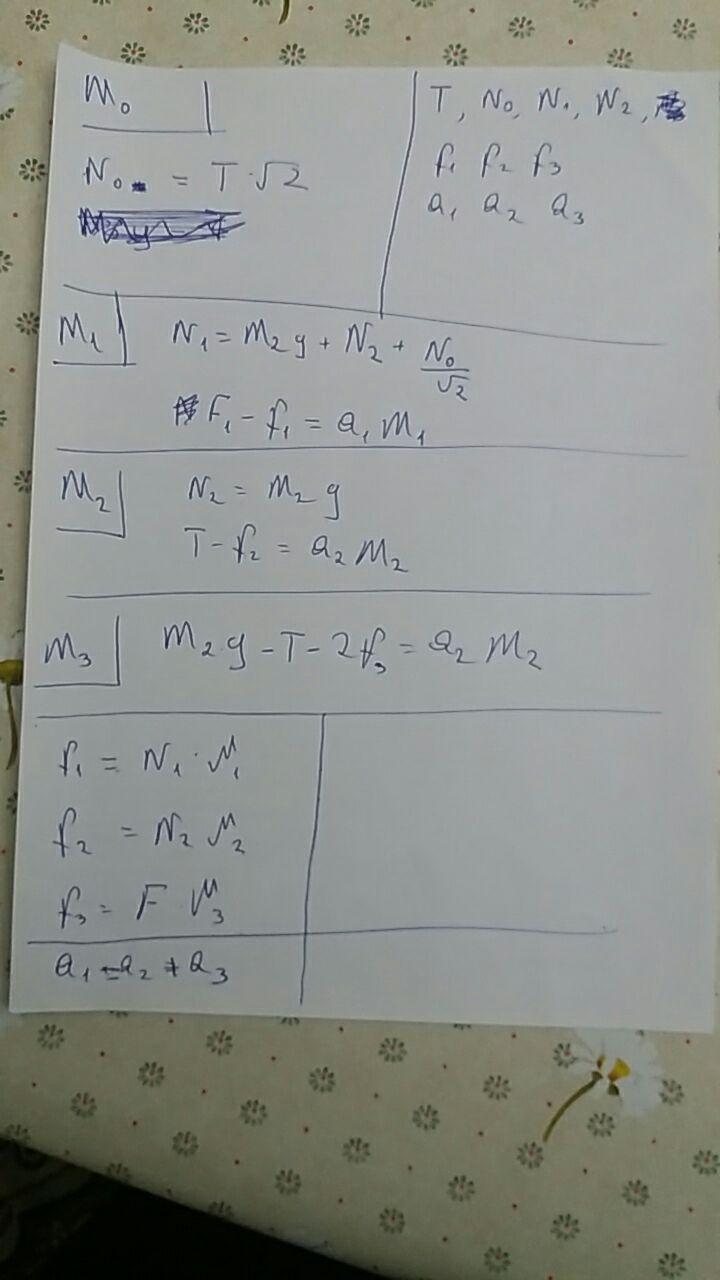 M₀
N₀ = T·√2
T, N₀, N₁, N₂,
f₁ f₂ f₃
a₁ a₂ a₃
M₁
N₁ = M₂g + N₂ + N₀/√2
F₁ - f₁ = a₁ M₁
M₂
N₂ = M₂ g
T - f₂ = a₂ M₂
M₃
M₂g - T - 2f₃ = a₂ M₂
f₁ = N₁ · μ₁
f₂ = N₂ μ₂
f₃ = F μ₃